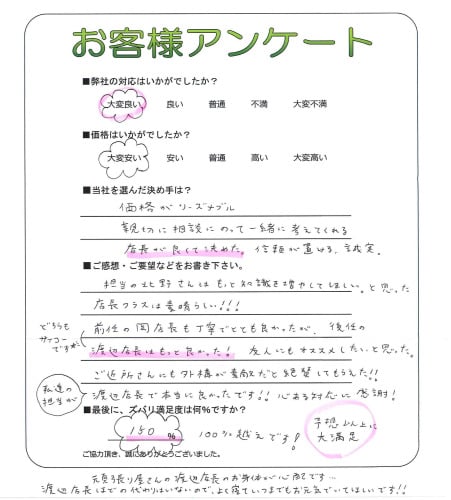 お客様アンケート
■弊社の対応はいかがでしたか？
大変良い 良い 普通 不満 大変不満
■価格はいかがでしたか？
大変安い 安い 普通 高い 大変高い
■当社を選んだ決め手は？
価格がリーズナブル
親切に相談にのって一緒に考えてくれる
店長が良くて決めた。信頼が置ける、誠実。
■ご感想・ご要望などをお書き下さい。
担当の北野さんはもっと知識を増やしてほしい。と思った
店長クラスは素晴らしい!!!
どちらもサイコーです
前任の岡店長も丁寧でとても良かったが、後任の
渡辺店長はもっと良かった！友人にもオススメしたい、と思った。
ご近所さんにも外構が素敵だと絶賛してもらえた!!
私達の担当が
渡辺店長で本当に良かったです!!心ある対応に感謝!
■最後に、ズバリ満足度は何%ですか？
150 % 100%越えです！
予想以上に大満足
ご協力頂き、誠にありがとうございました。
頑張り屋さんの渡辺店長のお身体が心配です…
渡辺店長ほどの代わりはいないので、よく寝ていつまでもお元気でいてほしいです!!